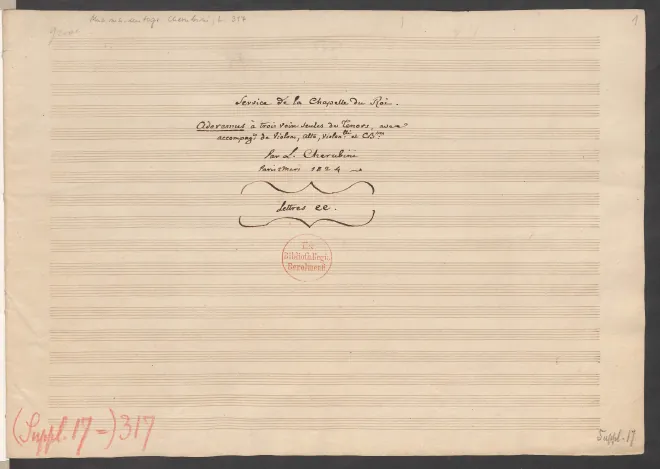 Mus. ms. autogr. Cherubini, L. 317
1
Service de la Chapelle du Roi.
Adoremus à trois voix seules de Ténors, avec
accompag.t de Violons, Alto, Violon.lle et C.B.sse
Par L. Cherubini
Paris 1824
Lettres ee.
Ex
Biblioth. Regia
Berolinensi
(Suppl. 17 =) 317
Suppl. 17